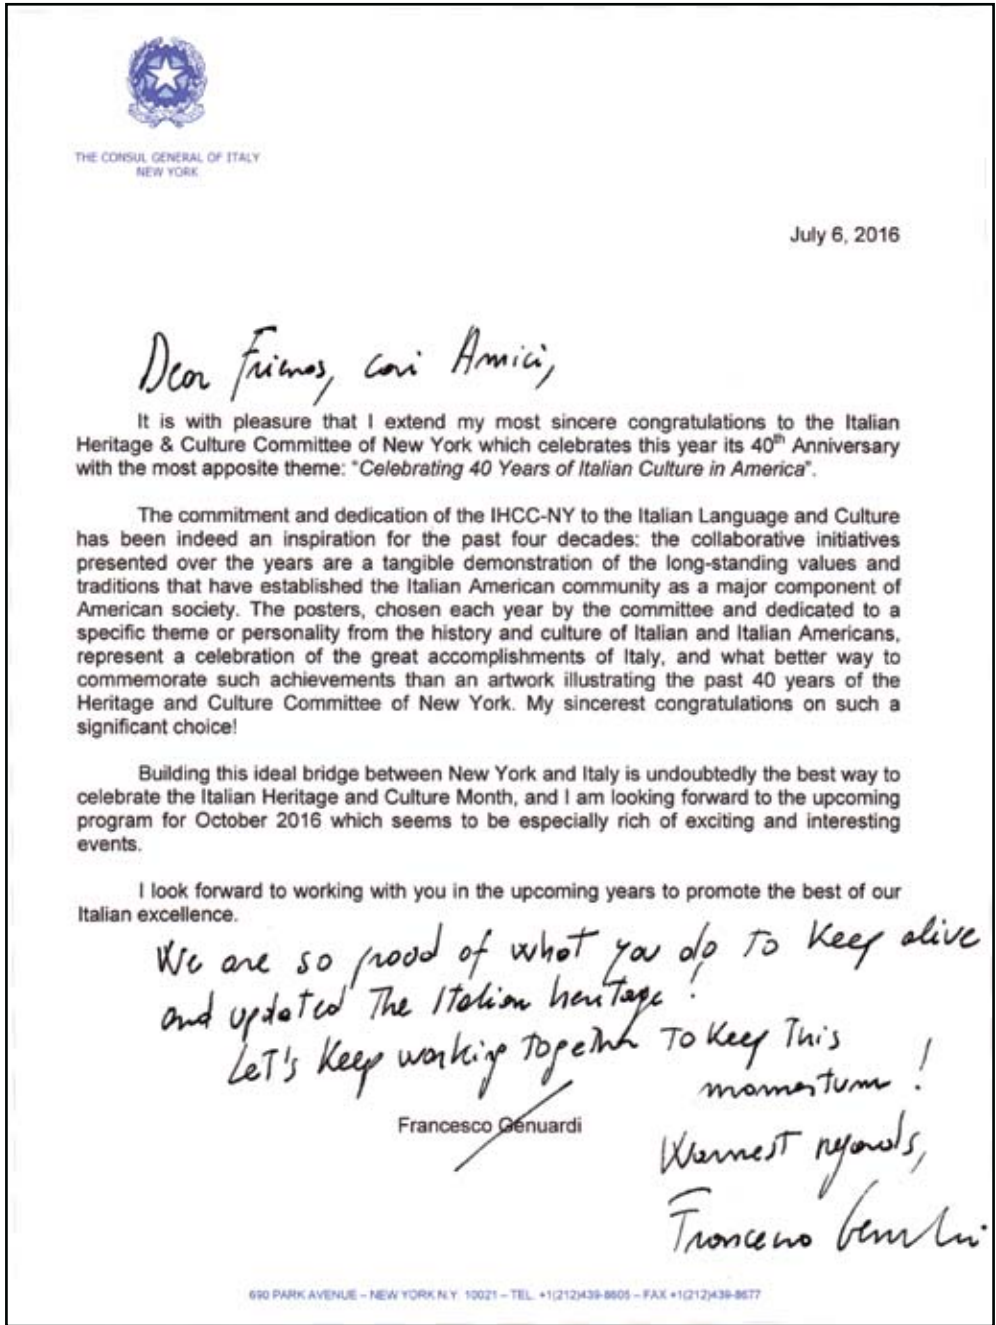 THE CONSUL GENERAL OF ITALY
NEW YORK
July 6, 2016
Dear Friends, cari Amici,
It is with pleasure that I extend my most sincere congratulations to the Italian
Heritage & Culture Committee of New York which celebrates this year its 40th Anniversary
with the most apposite theme: "Celebrating 40 Years of Italian Culture in America".
The commitment and dedication of the IHCC-NY to the Italian Language and Culture
has been indeed an inspiration for the past four decades: the collaborative initiatives
presented over the years are a tangible demonstration of the long-standing values and
traditions that have established the Italian American community as a major component of
American society. The posters, chosen each year by the committee and dedicated to a
specific theme or personality from the history and culture of Italian and Italian Americans,
represent a celebration of the great accomplishments of Italy, and what better way to
commemorate such achievements than an artwork illustrating the past 40 years of the
Heritage and Culture Committee of New York. My sincerest congratulations on such a
significant choice!
Building this ideal bridge between New York and Italy is undoubtedly the best way to
celebrate the Italian Heritage and Culture Month, and I am looking forward to the upcoming
program for October 2016 which seems to be especially rich of exciting and interesting
events.
I look forward to working with you in the upcoming years to promote the best of our
Italian excellence.
We are so proud of what you do to keep alive
and updated the Italian heritage!
Let's keep working together to keep this
momentum!
Francesco Genuardi
Warmest regards,
Francesco Genuardi
690 PARK AVENUE – NEW YORK N.Y. 10021 – TEL. +1(212)439-8605 – FAX +1(212)439-8677